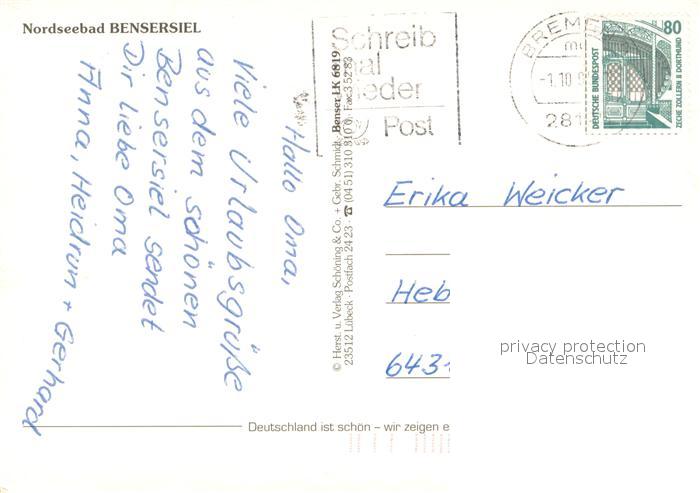 Nordseebad BENSERSIEL
Hallo Oma,
Viele Urlaubsgrüße
aus dem schönen
Bensersiel sendet
Dir liebe Oma
Anna, Heidrun + Gerhard
© Herst. u. Verlag Schöning & Co. + Gebr. Schmidt, Benser LK 6819
23512 Lübeck · Postfach 24 23 · ☎ (04 51) 310 3 · Fax 3 52 83
Schreib
mal
wieder
Post
BREME
-1.10.
281
DEUTSCHE BUNDESPOST
80
ZECHE ZOLLERN II DORTMUND
Erika Weicker
Heb
6431
privacy protection
Datenschutz
Deutschland ist schön – wir zeigen e